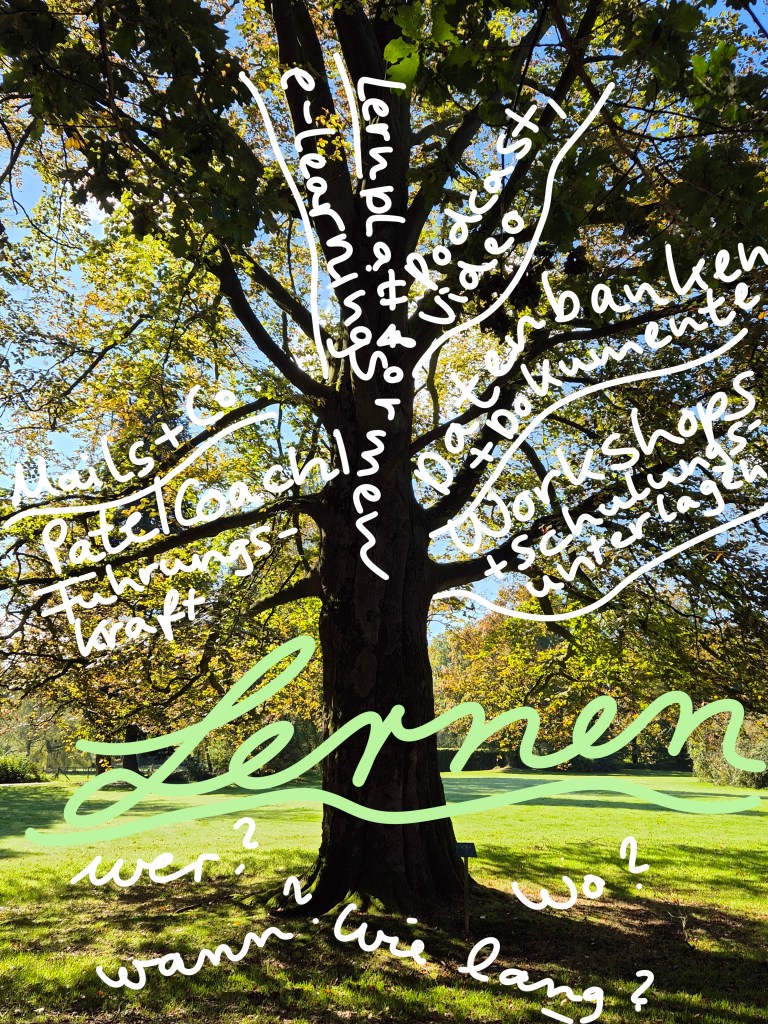 e-learnings
Lernplattformen
Podcast,
Video
Datenbanken
+ Dokumente
Workshops
+ Schulungs-
unterlagen
Mails + Co
Pate/Coach/
Führungs-
kraft
Lernen
wer?
wo?
wann?
wie lang?